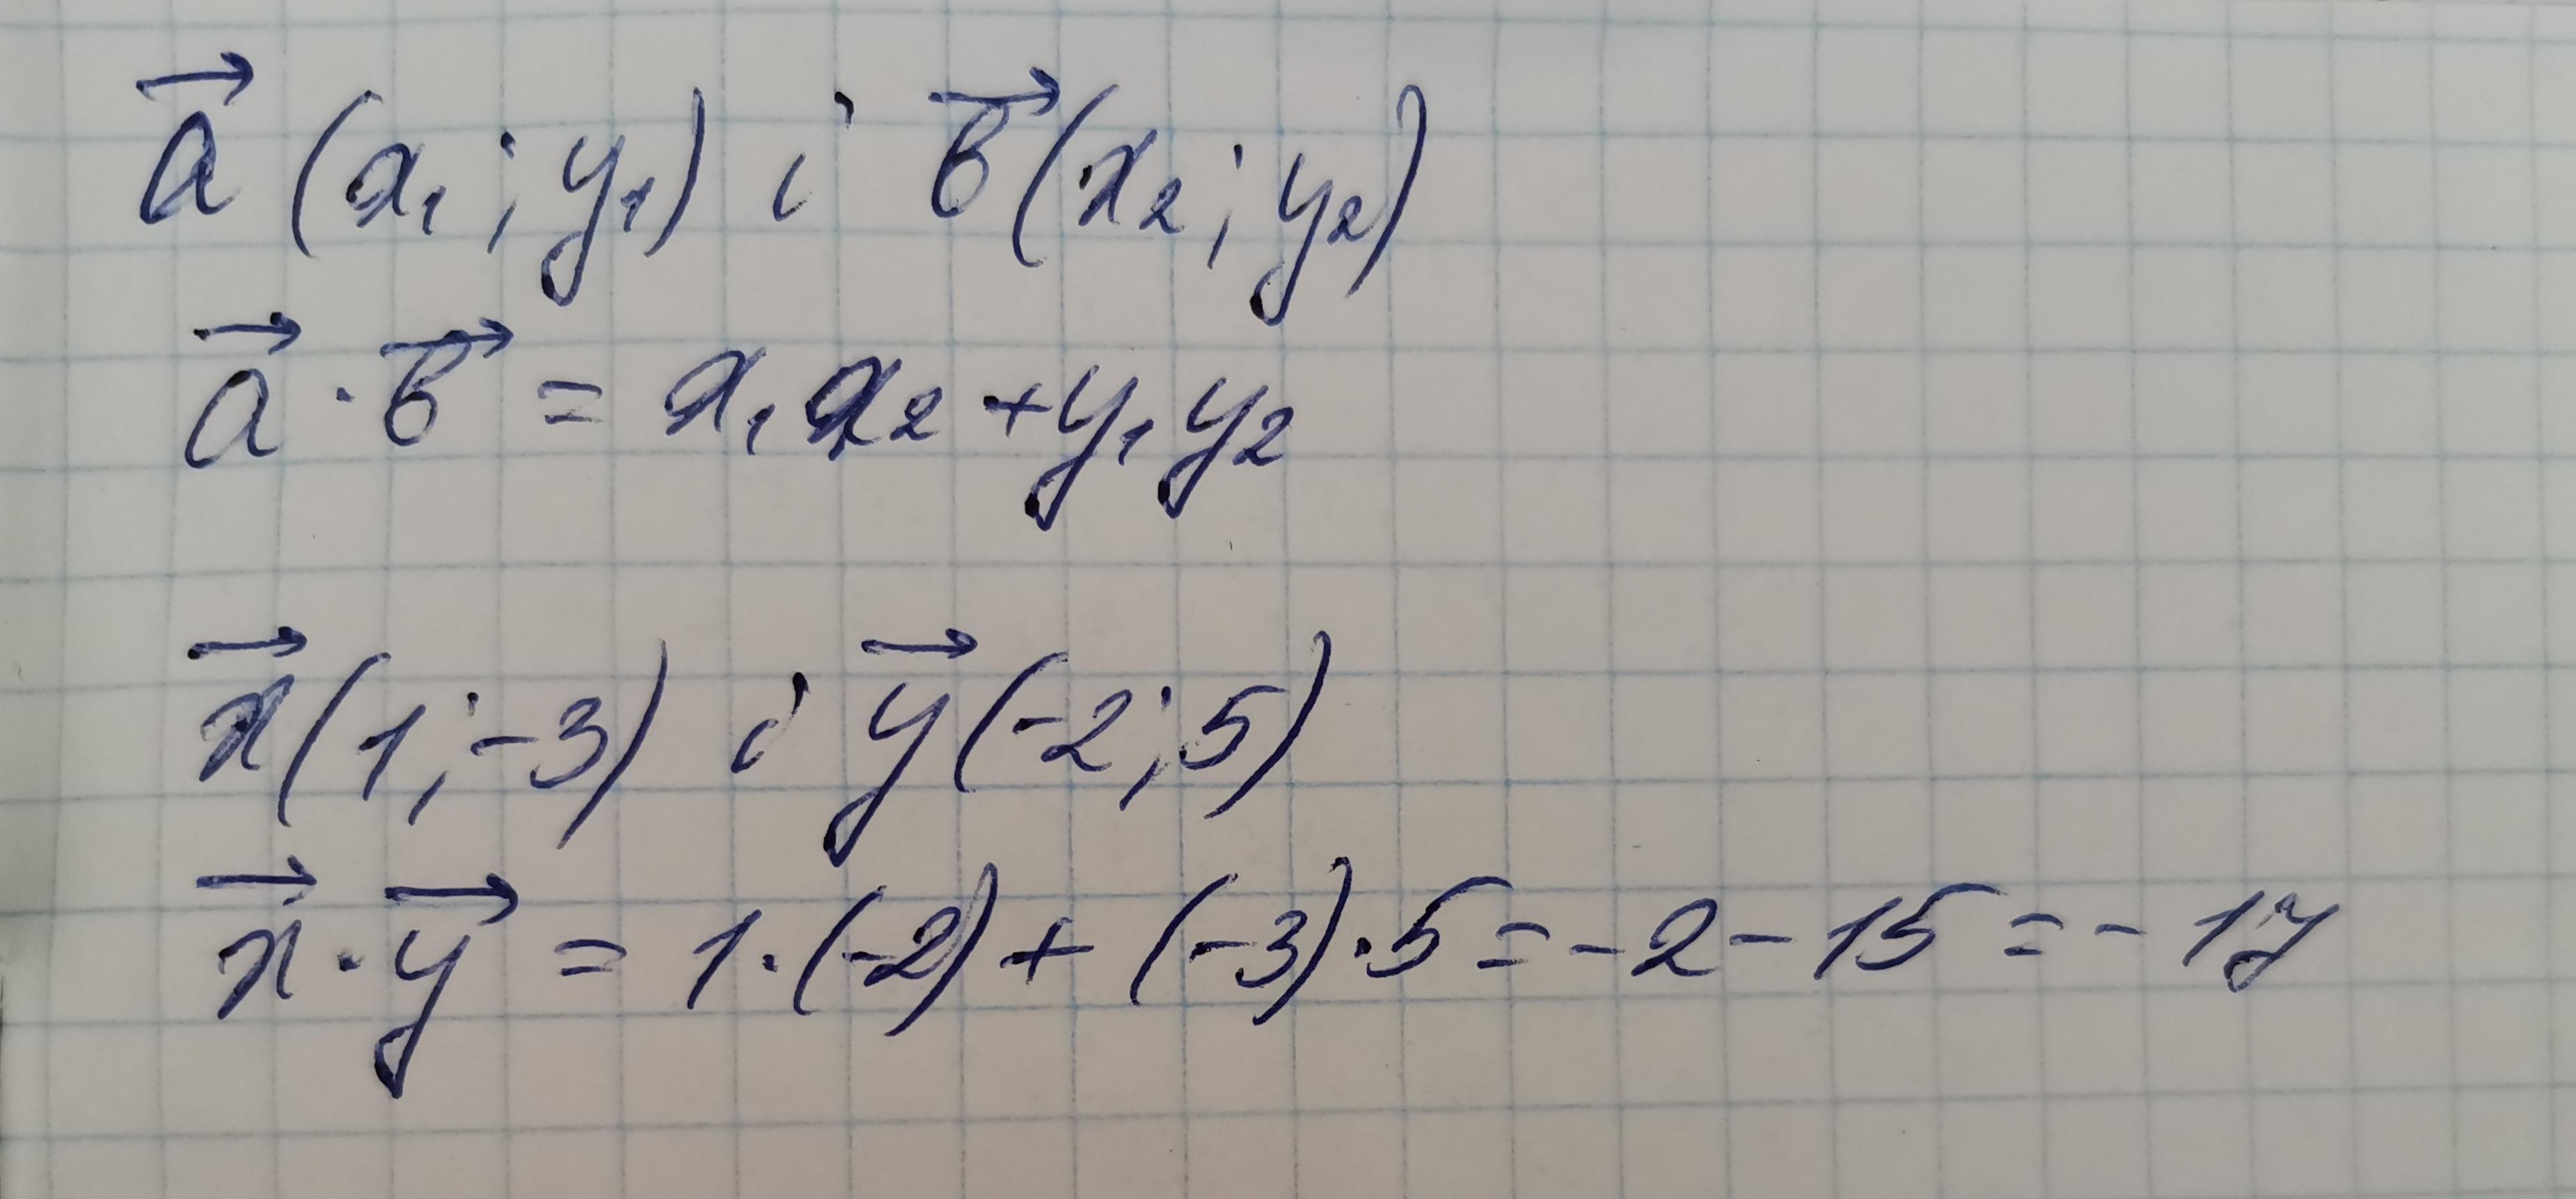 a⃗ (x₁; y₁) і b⃗ (x₂; y₂)
a⃗ · b⃗ = x₁x₂ + y₁y₂
x⃗ (1; -3) і y⃗ (-2; 5)
x⃗ · y⃗ = 1 · (-2) + (-3) · 5 = -2 - 15 = -17